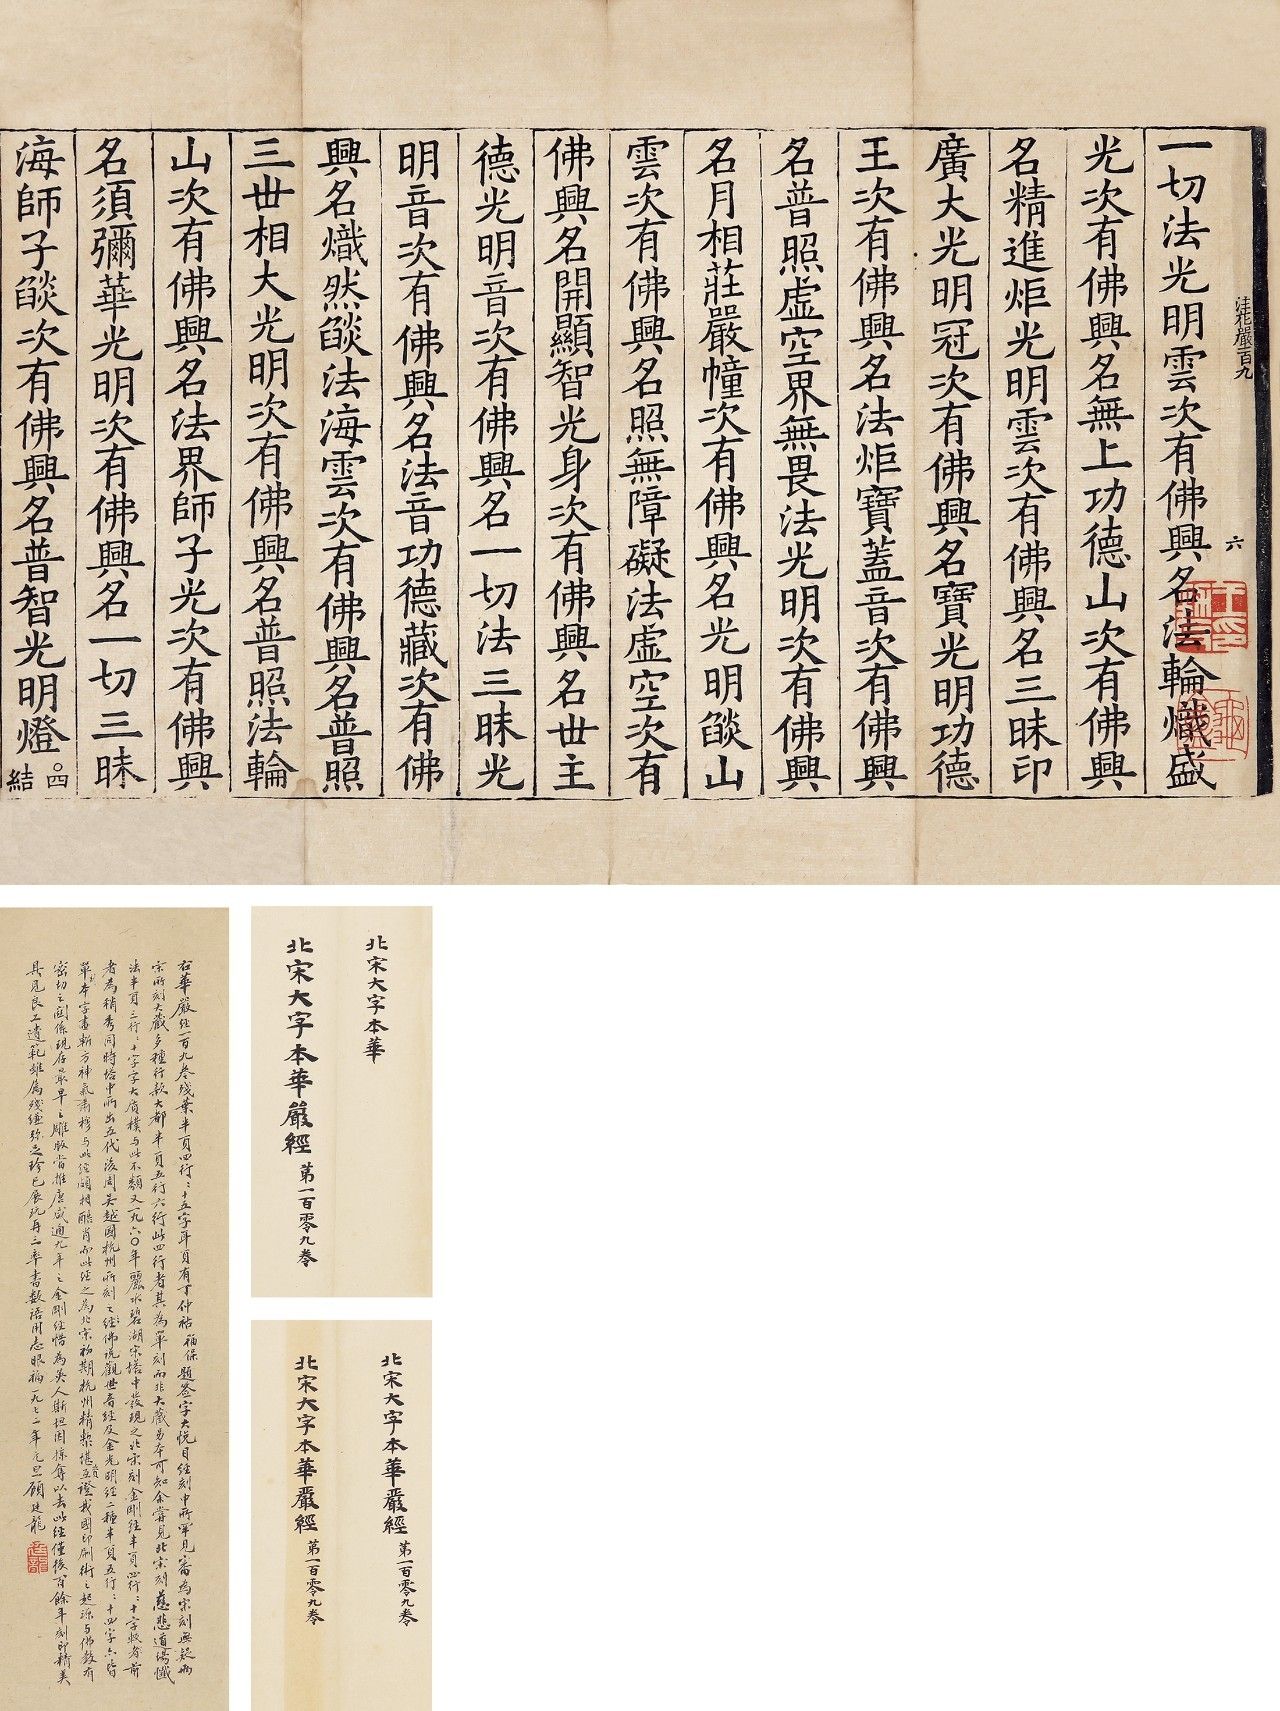 一切法光明雲次有佛興名法輪熾盛
光次有佛興名無上功德山次有佛興
名精進炬光明雲次有佛興名三昧印
廣大光明冠次有佛興名寶光明功德
王次有佛興名法炬寶蓋音次有佛興
名普照虛空界無畏法光明次有佛興
名月相莊嚴幢次有佛興名光明燄山
雲次有佛興名照無障礙法虛空次有
佛興名開顯智光身次有佛興名世主
德光明音次有佛興名一切法三昧光
明音次有佛興名法音功德藏次有佛
興名熾然燄法海雲次有佛興名普照
三世相大光明次有佛興名普照法輪
山次有佛興名法界師子光次有佛興
名須彌華光明次有佛興名一切三昧
海師子燄次有佛興名普智光明燈
四
結
嚴百九
六
右華嚴經一百九卷殘葉半頁四行行十五字耳頁有丁仲祜福保題簽字大悅目經刻中所罕見審為宋刻無疑兩
宋所刻大藏多種行款大都半頁五行六行此四行者其為單刻而非大藏另本可知余嘗見北宋刻慈悲道場懺
法半頁三行行十字字大質樸與此不類又一九六〇年麗水碧湖宋塔中發現之北宋刻金剛經半頁四行行十字較前
者為稍秀同時塔中所出五代後周吳越國杭州所刻之佛說觀世音經及金光明經二種半頁五行行十四字六皆
單本字畫斬方神氣肅穆與此經頗相酷肖而此經之為北宋初期杭州精槧堪互證我國印刷術之起源與佛教有
密切之關係現存最早之雕版當推唐咸通九年之金剛經惜為英人斯坦因掠奪以去此經僅後百餘年刻印精美
具見良工遺範雖屬殘縑彌足珍已展玩再三率書數語用志眼福一九七二年元旦顧廷龍
北宋大字本華
北宋大字本華嚴經 第一百零九卷
北宋大字本華嚴經 第一百零九卷
北宋大字本華嚴經 第一百零九卷